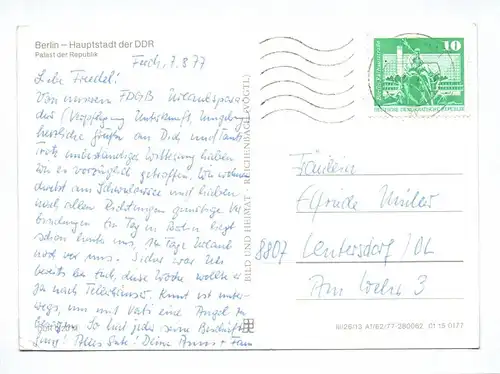 Berlin – Hauptstadt der DDR
Palast der Republik
7.8.77
Liebe Friedel!
Von unserem FDGB Urlaubs
(Verpflegung Unterkunft, Umgebung
herzliche Grüße an Dich und
trotz unbeständiger Witterung haben
wir es vorzüglich getroffen. Wir wohnen
direkt am und haben
nach allen Richtungen günstige Ver
bindungen Ein Tag in Berlin liegt
schon hinter uns, 14 Tage Urlaub
noch vor uns. Sicher war
bereits bei Euch, diese Woche wollte er
ja nach Kunst ist unter-
wegs, um mit Vati eine Angel zu
So hat jeder seine Beschäfti
gung! Alles Gute! Deine + Fam
BILD UND HEIMAT · REICHENBACH (VOGTL)
10
DEUTSCHE DEMOKRATISCHE REPUBLIK
Fräulein
Elfriede
8807 Leutersdorf/OL
Am 3
III/26/13 A1/62/77-280062 01 15 0177